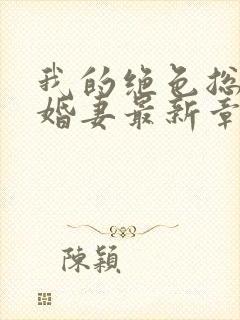 我的绝色总
婚妻最新章
陳穎